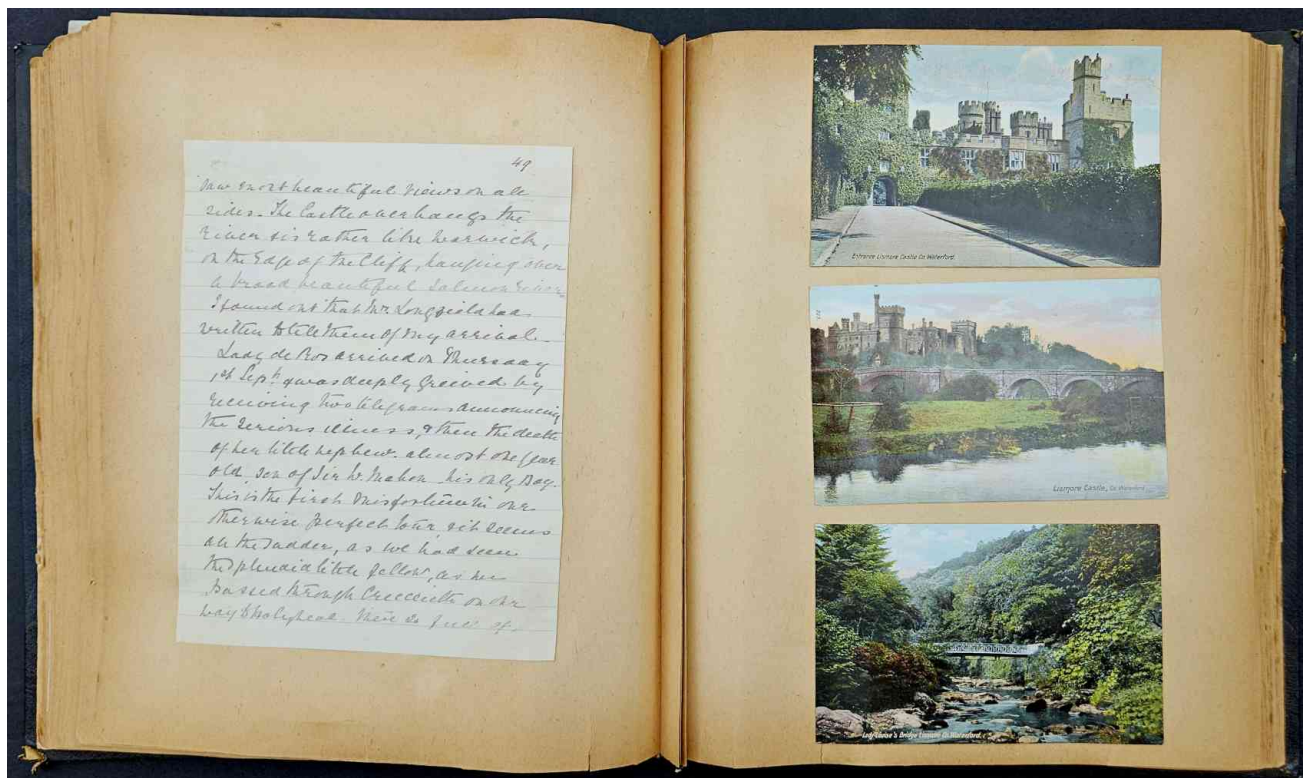 49
saw most beautiful views on all
sides. The Castle overhangs the
river & is rather like Warwick,
on the Edge of the Cliff, hanging over
a broad beautiful Salmon River
I found out that Mr. Longfield had
written to tell them of my arrival.
Lady de Ros arrived on Thursday
1st Sept. & was deeply grieved by
receiving two telegrams announcing
the serious illness, & then the death
of her little nephew. almost one year
old, son of Sir W. Mahon his only Boy.
This is the first misfortune in our
otherwise perfect tour, & it seems
all the sadder, as we had seen
the splendid little fellow, as we
passed through Criccieth on our
way to Holyhead. is full of
Entrance Lismore Castle Co. Waterford.
Lismore Castle, Co. Waterford
Lady Louisa's Bridge Lismore Co. Waterford.